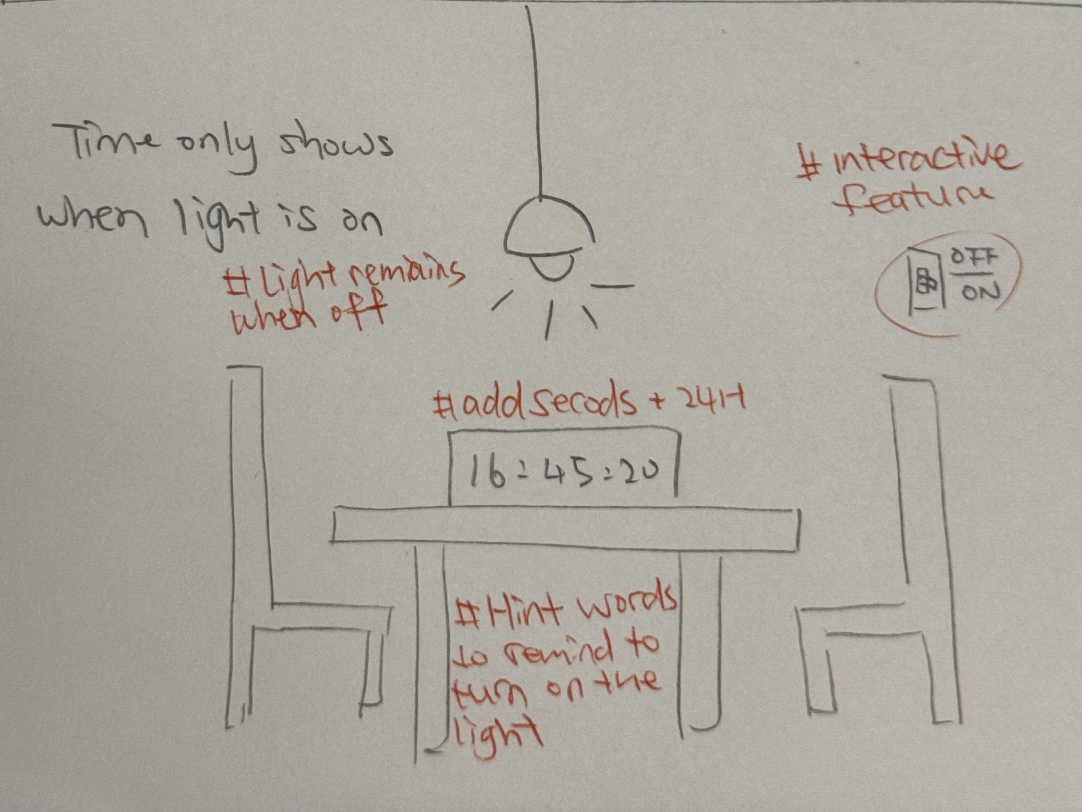 Time only shows
when light is on
# Light remains
when off
# interactive
feature
OFF
ON
# add secods + 24H
16:45:20
# Hint words
to remind to
turn on the
light